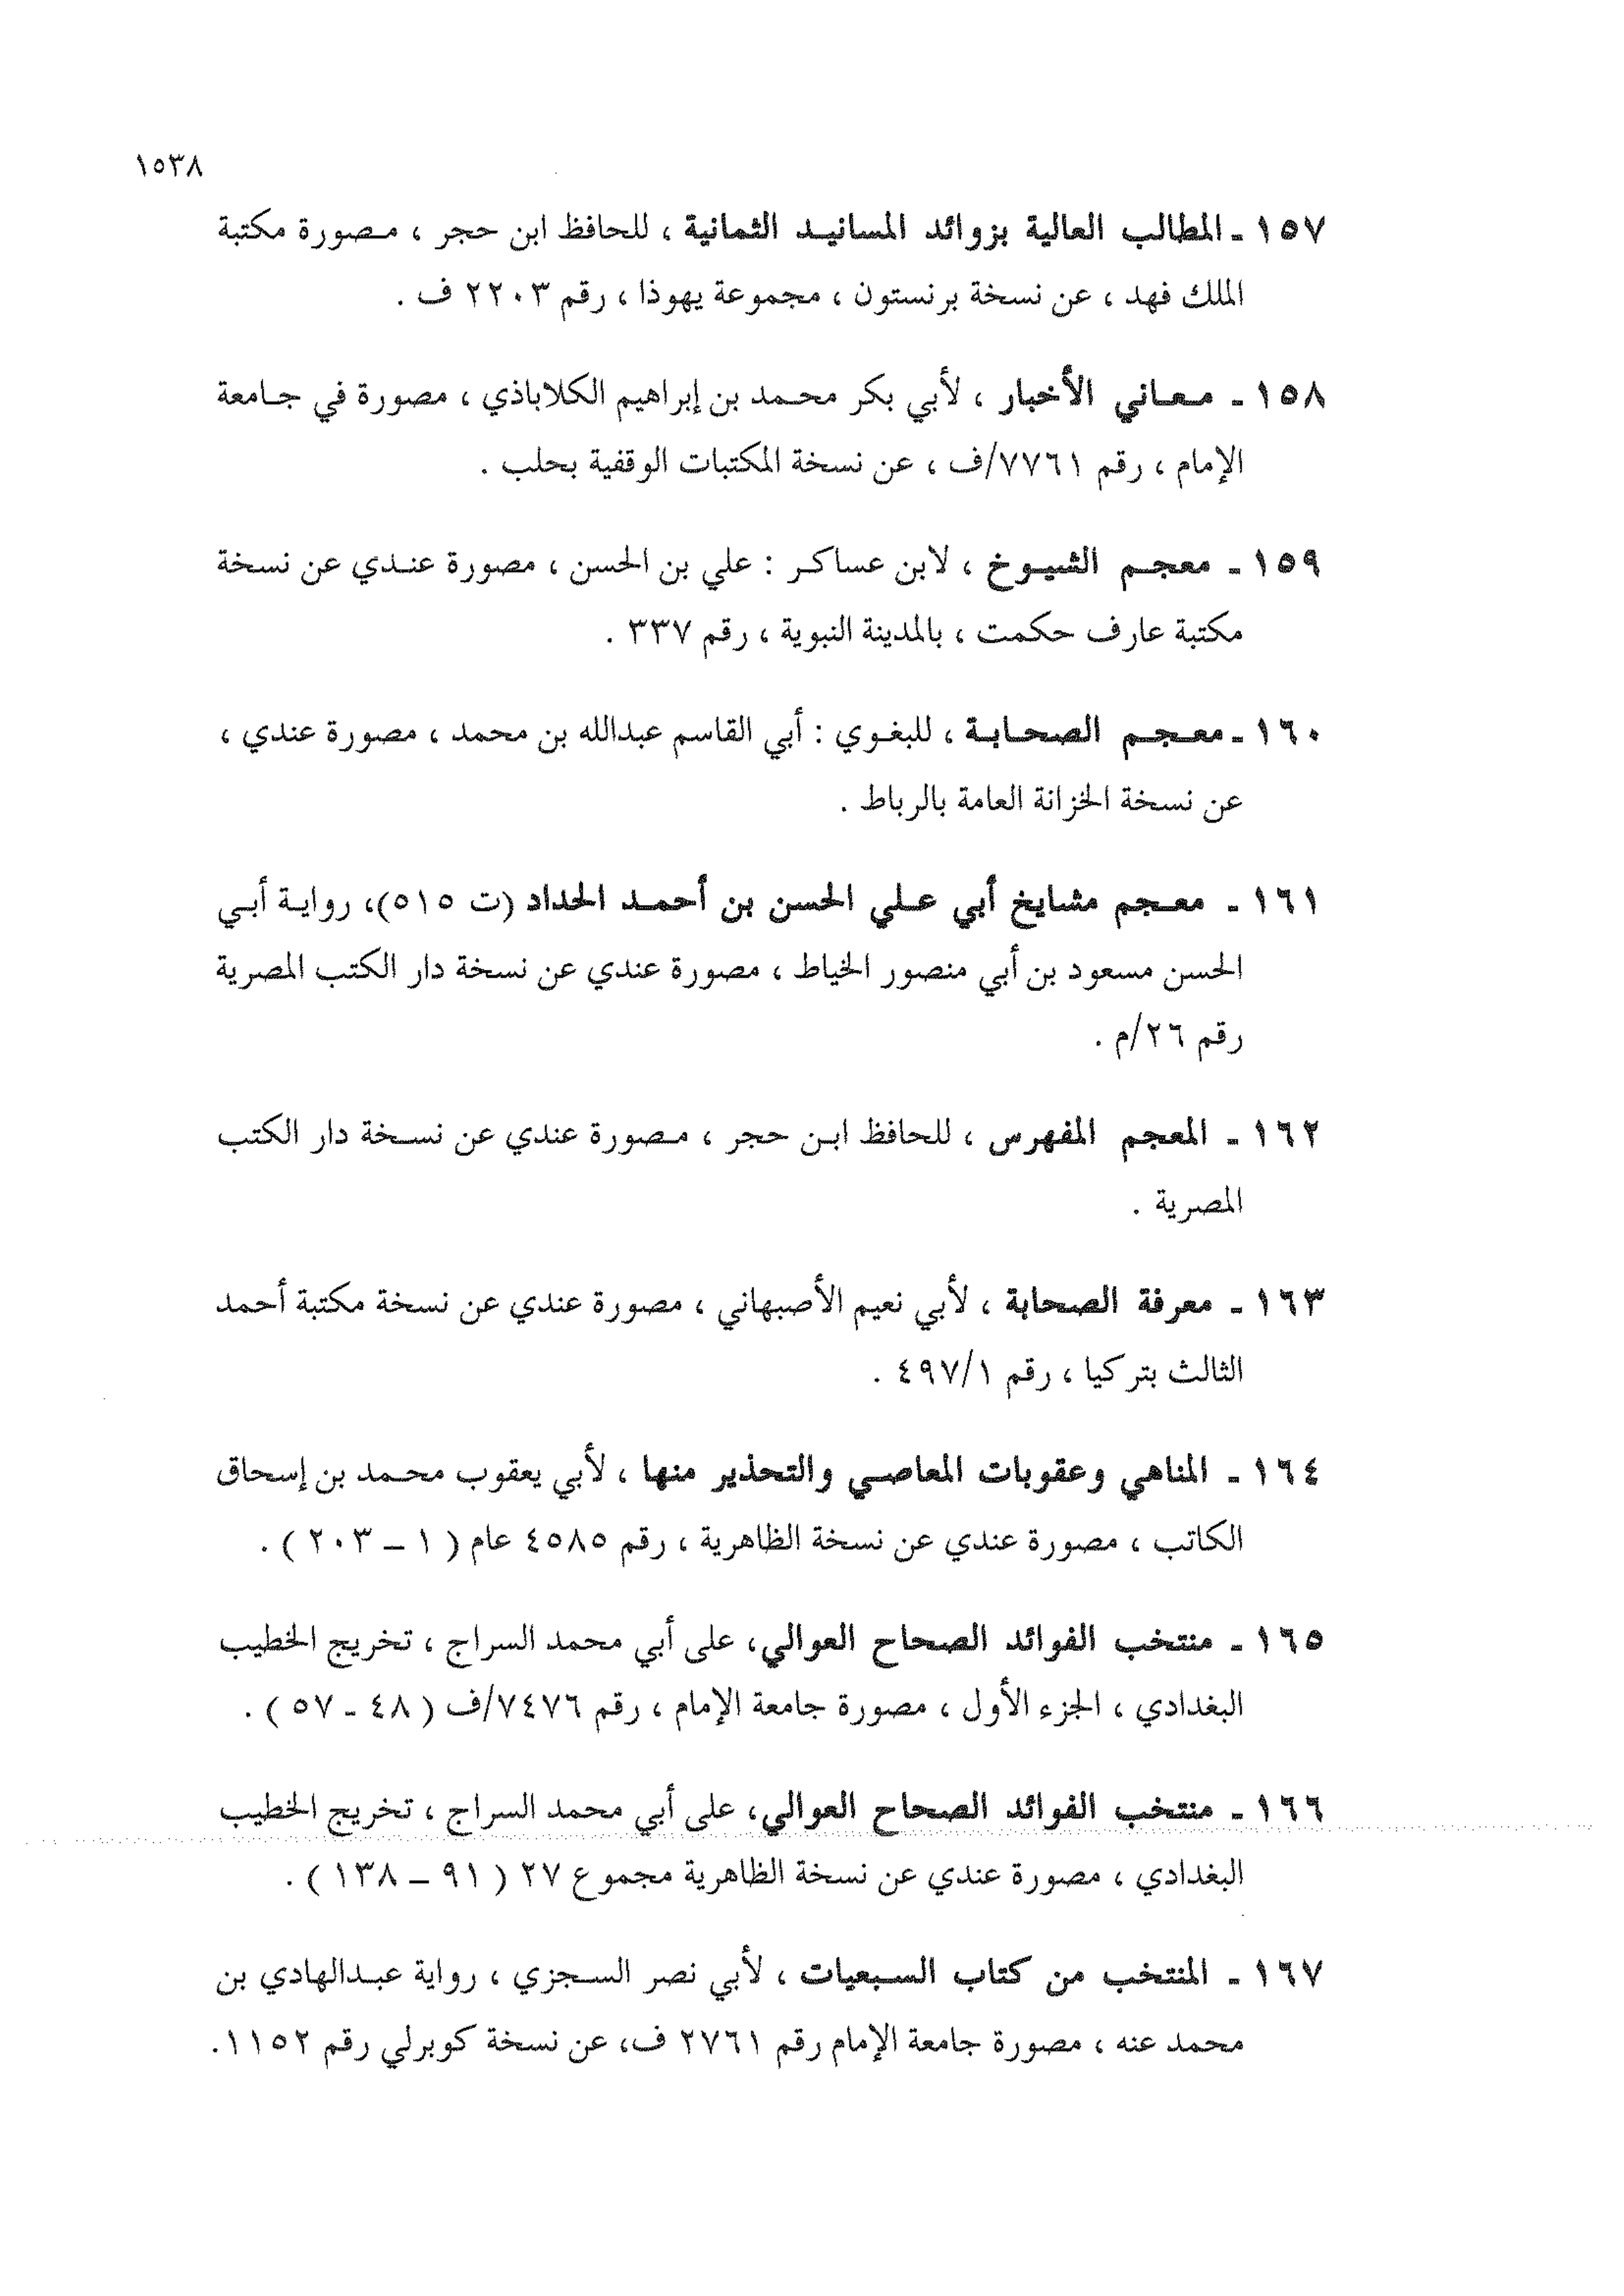 ١٥٣٨
١٥٧ - المطالب العالية بزوائد المسانيد الثمانية ، للحافظ ابن حجر ، مصورة مكتبة
الملك فهد ، عن نسخة برنستون ، مجموعة يهوذا ، رقم ٢٢٠٣ ف .
١٥٨ - معاني الأخبار ، لأبي بكر محمد بن إبراهيم الكلاباذي ، مصورة في جامعة
الإمام ، رقم ٧٧٦١/ف ، عن نسخة المكتبات الوقفية بحلب .
١٥٩ - معجم الشيوخ ، لابن عساكر : علي بن الحسن ، مصورة عندي عن نسخة
مكتبة عارف حكمت ، بالمدينة النبوية ، رقم ٣٣٧ .
١٦٠ - معجم الصحابة ، للبغوي : أبي القاسم عبدالله بن محمد ، مصورة عندي ،
عن نسخة الخزانة العامة بالرباط .
١٦١ - معجم مشايخ أبي علي الحسن بن أحمد الحداد (ت ٥١٥)، رواية أبي
الحسن مسعود بن أبي منصور الخياط ، مصورة عندي عن نسخة دار الكتب المصرية
رقم ٢٦/م .
١٦٢ - المعجم المفهرس ، للحافظ ابن حجر ، مصورة عندي عن نسخة دار الكتب
المصرية .
١٦٣ - معرفة الصحابة ، لأبي نعيم الأصبهاني ، مصورة عندي عن نسخة مكتبة أحمد
الثالث بتركيا ، رقم ٤٩٧/١ .
١٦٤ - المناهي وعقوبات المعاصي والتحذير منها ، لأبي يعقوب محمد بن إسحاق
الكاتب ، مصورة عندي عن نسخة الظاهرية ، رقم ٤٥٨٥ عام ( ١ – ٢٠٣ ) .
١٦٥ - منتخب الفوائد الصحاح العوالي، على أبي محمد السراج ، تخريج الخطيب
البغدادي ، الجزء الأول ، مصورة جامعة الإمام ، رقم ٧٤٧٦/ف ( ٤٨ - ٥٧ ) .
١٦٦ - منتخب الفوائد الصحاح العوالي، على أبي محمد السراج ، تخريج الخطيب
البغدادي ، مصورة عندي عن نسخة الظاهرية مجموع ٢٧ ( ٩١ – ١٣٨ ) .
١٦٧ - المنتخب من كتاب السبعيات ، لأبي نصر السجزي ، رواية عبدالهادي بن
محمد عنه ، مصورة جامعة الإمام رقم ٢٧٦١ ف، عن نسخة كوبرلي رقم ١١٥٢.